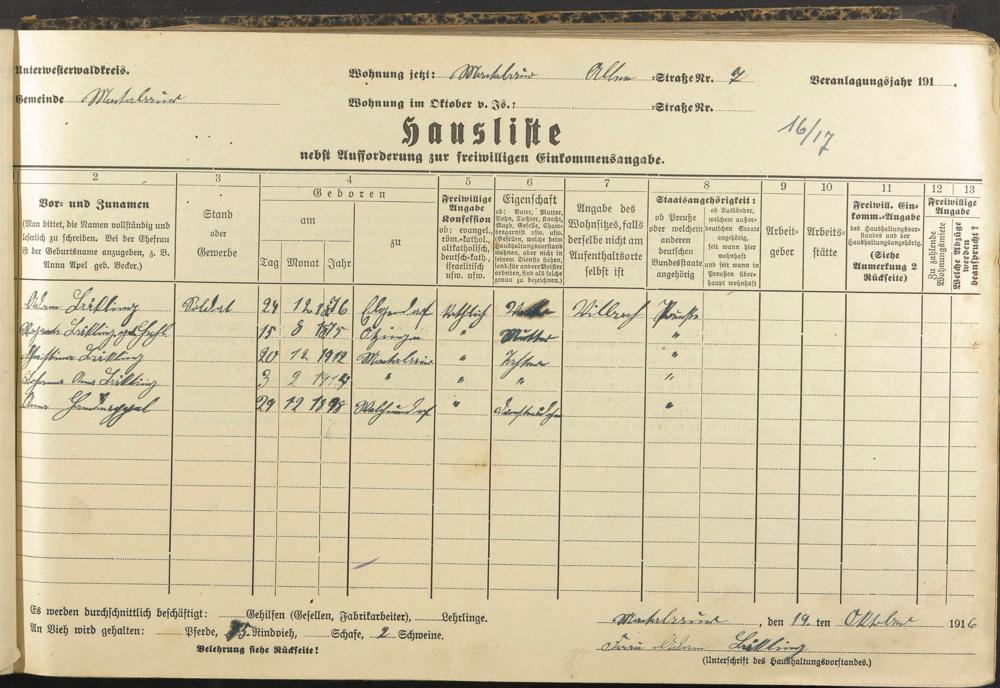 Unterwesterwaldkreis.
Gemeinde Montabaur
Wohnung jetzt: Montabaur Allee -Straße Nr. 7
Veranlagungsjahr 191 .
Wohnung im Oktober v. Js.: -Straße Nr.
16/17
Hausliste
nebst Aufforderung zur freiwilligen Einkommensangabe.
2
Vor- und Zunamen
(Man bittet, die Namen vollständig und
leserlich zu schreiben. Bei der Ehefrau
ist der Geburtsname anzugeben, z. B.
Anna Apel geb. Becker.)
3
Stand
oder
Gewerbe
4
Geboren
am
zu
Tag Monat Jahr
5
Freiwillige
Angabe
Konfession
ob: evangel.,
röm.-kathol.,
altkatholisch,
deutsch-kath.,
israelitisch
usw. usw.
6
Eigenschaft
ob: Vater, Mutter,
Sohn, Tochter, Knecht,
Magd, Geselle, Cham-
bregarnist usw. usw.
(Gesellen, welche beim
Haushaltungsvorstand
wohnen, aber nicht in
seinem Dienste stehen,
sond. für andere Meister
arbeiten, sind als solche
genau zu bezeichnen.)
7
Angabe des
Wohnsitzes, falls
derselbe nicht am
Aufenthaltsorte
selbst ist
8
Staatsangehörigkeit:
ob Preuße
oder welchem
anderen
deutschen
Bundesstaate
angehörig
ob Ausländer,
welchem außer-
deutschen Staate
angehörig,
seit wann hier
wohnhaft
und seit wann in
Preußen über-
haupt wohnhaft
9
Arbeit-
geber
10
Arbeits-
stätte
11
Freiwill. Ein-
komm.-Angabe
des Haushaltungsvor-
standes und der
Haushaltungsangehörig.
(Siehe
Anmerkung 2
Rückseite)
12 13
Freiwillige
Angabe
Zu zahlende
Wohnungsmiete
Welche Abzüge
werden
beansprucht?
Soldat 24 12 1876 Elgendorf Kathlich Vilbach Preuße
15 8 1875 Ötzingen " Mutter "
20 12 1912 Montabaur " Tochter "
3 2 1914 " " " "
Anna 29 12 1898 " "
Es werden durchschnittlich beschäftigt: Gehilfen (Gesellen, Fabrikarbeiter), Lehrlinge.
An Vieh wird gehalten: Pferde, Rindvieh, Schafe, 2 Schweine.
Belehrung siehe Rückseite!
Montabaur, den 19. ten Oktober 1916
Frau Adam
(Unterschrift des Haushaltungsvorstandes.)